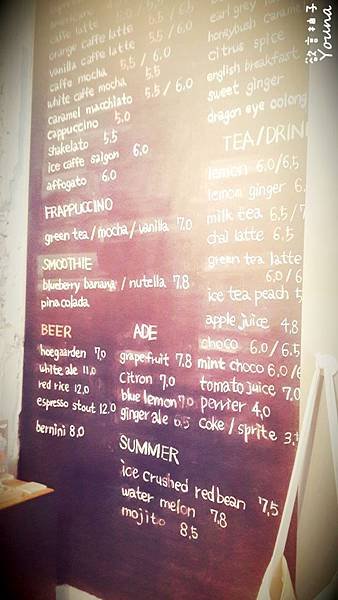 orange caffe latte
vanilla caffe latte 5.5 / 6.0
caffe mocha 5.5 / 6.0
white caffe mocha 5.5
caramel macchiato 5.5 / 6.0
cappuccino 5.0
shakelato 5.5
ice caffe saigon 6.0
affogato 6.0
FRAPPUCCINO
green tea / mocha / vanilla 7.0
SMOOTHIE
blueberry banana / nutella 7.8
pinacolada
BEER
hoegaarden 7.0
white ale 11.0
red rice 12.0
espresso stout 12.0
bernini 8.0
ADE
grapefruit 7.8
Citron 7.0
blue lemon 7.0
ginger ale 6.5
SUMMER
ice crushed redbean 7.5
water melon 7.8
mojito 8.5
earl grey
honeybush caramel
citrus spice
english breakfast
sweet ginger
dragon eye oolong
TEA/DRIN
lemon 6.0/6.5
lemon ginger 6.
milk tea 6.5/7
chai latte 6.5
green tea latte
6.0/6
ice tea peach 5
apple juice 4.8
choco 6.0/6.5
mint choco 6.0/6
tomato juice 7.0
perrier 4.0
coke / sprite 3.
Youna